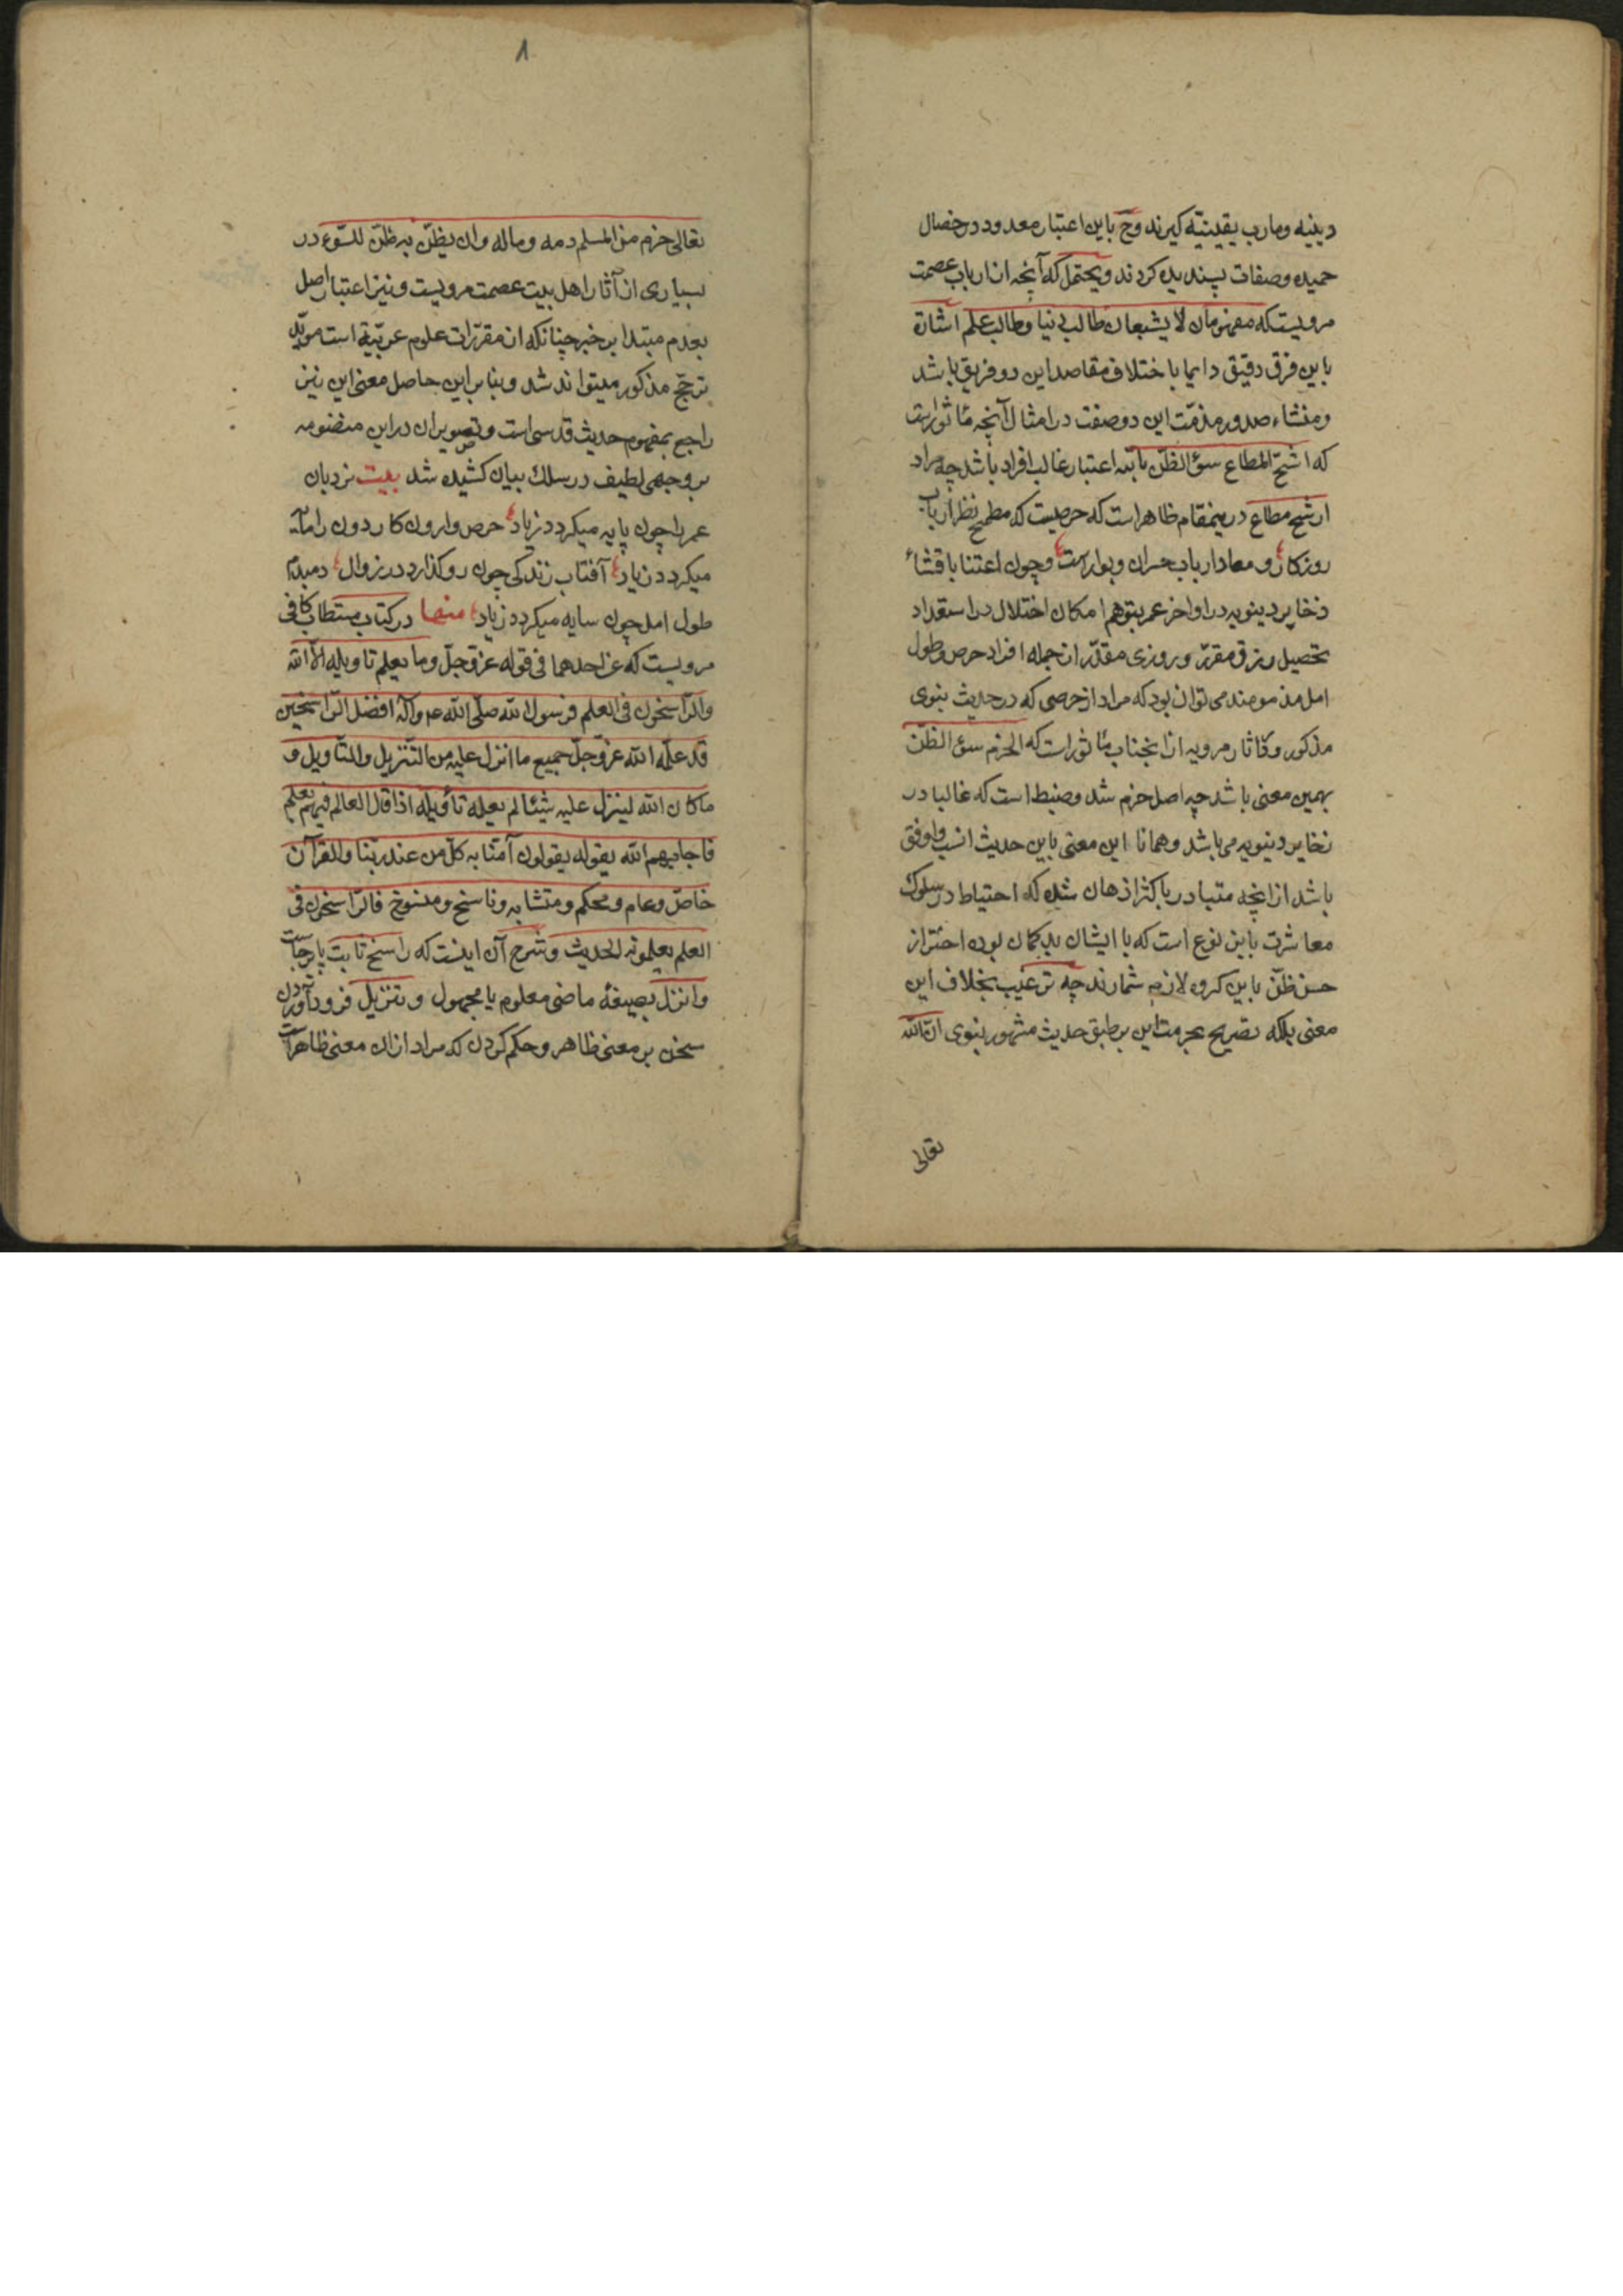 دینیه ومارب یقینیّه گیرند وحّ باین اعتبار معدود در خصال
حمیده وصفات پسندیده کردند ویحتمل که آنچه از ارباب عصمت
مرویست که منهومان لا یشبعان طالب دنیا وطالب علم اشارة
باین فرق دقیق دایما باختلاف مقاصد این دو فریق باشد
ومنشاء صدور مذمّت این دو صفت در امثال آنچه مأثور است
که اشحّ المطاع سؤ الظنّ بانّه اعتبار غالب افراد باشد چه مراد
از شح مطاع درینمقام ظاهر است که حرصیست که مطمح نظر ارباب
روزکار و معاد ارباب خسران وبوار است وچون اعتنا باقتناء
ذخایر دینویه در اواخر عمر بتوهم امکان اختلال در استعداد
تحصیل رزق مقرّر وروزی مقدّر از جمله افراد حرص وطول
امل مذمومند می توان بود که مراد از حرصی که در حدیث نبوی
مذکور و آثار مرویه از انجناب مأثور است که الحزم سؤ الظنّ
بهمین معنی باشد چه اصل حزم شد وضبط است که غالبا در
ذخایر دنیویه می باشد وهمانا این معنی باین حدیث انسب واوفق
باشد از انچه متبادر باکثر اذهان شده که احتیاط در سلوک
معاشرت باین نوع است که با ایشان بدکمان بوده احتراز
حسن ظنّ باین کروه لازم شمارند چه ترغیب بخلاف این
معنی بلکه تصریح بحرمت این بر طبق حدیث مشهور نبوی انّ الله
تعالی
۸
تعالی حرم من المسلم دمه وماله وان یظنّ به ظنّ السّوء در
بسیاری از آثار اهل بیت عصمت مرویست ونیز اعتبار اصل
بعدم مبتدا بر خبر چنانکه از مقرّرات علوم عربّیة است موّید
ترجّح مذکور میتواند شد وبنا بر این حاصل معنی این نیز
راجع بمفهوم حدیث قدسی است وتصویر ان در این منضومه
بر وجهی لطیف در سلک بیان کشیده شد بیت نردبان
عمر را چون پایه میکردد زیاد حرص وارون کار دون را مآیه
میکردد زیاد آفتاب زندکی چون رو کذارد در زوال دمبدم
طول امل چون سایه میکردد زیاد منها در کتاب مستطاب کافی
مرویست که عن احدهما فی قوله عزّ وجلّ وما یعلم تاویله الّا الله
والرّاسخون فی العلم فرسول الله صلّی الله ع وآله افضل الرّاسخین
قد علّمه الله عزّ وجلّ جمیع ما انزل علیه من التّنزیل والتّاویل و
ما کان الله لینزل علیه شیئا لم یعلمه تأویله اذا قال العالم فیهم بعلم
فاجابهم الله بقوله یقولون آمنّا به کلّ من عند ربّنا والقرآن
خاصّ وعام ومحکم ومتشابه وناسخ ومنسوخ فالرّاسخون فی
العلم یعلمونه الحدیث وشرح آن اینست که راسخ ثابت پا برجاست
وانزل بصیغهٔ ماضی معلوم یا مجهول وتنزیل فرود آوردن
سخن بر معنی ظاهر وحکم کردن که مراد از ان معنی ظاهر است